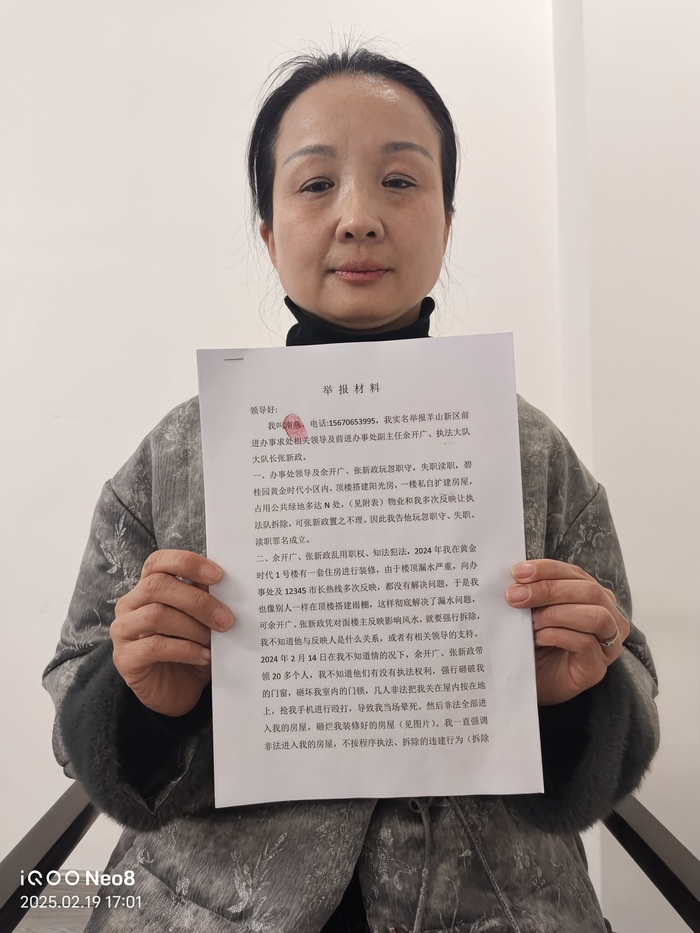 举报材料
领导好:
我叫南燕，电话:15670653995，我实名举报羊山新区前
进办事求处相关领导及前进办事处副主任余开广、执法大队
大队长张新政。
一、办事处领导及余开广、张新政玩忽职守，失职渎职，碧
桂园黄金时代小区内，顶楼搭建阳光房，一楼私自扩建房屋，
占用公共绿地多达 N 处，（见附表）物业和我多次反映让执
法队拆除，可张新政置之不理。因此我告他玩忽职守、失职、
渎职罪名成立。
二、余开广、张新政乱用职权、知法犯法，2024 年我在黄金
时代 1 号楼有一套住房进行装修，由于楼顶漏水严重，向办
事处及 12345 市长热线多次反映，都没有解决问题，于是我
也像别人一样在顶楼搭建雨棚，这样彻底解决了漏水问题，
可余开广、张新政凭对面楼主反映影响风水，就要强行拆除，
我不知道他与反映人是什么关系，或者有相关领导的支持。
2024 年 2 月 14 日在我不知道情的况下，余开广、张新政带
领 20 多个人，我不知道他们有没有执法权利，强行砸破我
的门窗，砸坏我室内的门锁，几人非法把我关在屋内按在地
上，抢我手机进行殴打，导致我当场晕死。然后非法全部进
入我的房屋，砸烂我装修好的房屋（见图片）。我一直强调
非法进入我的房屋，不按程序执法、拆除的违建行为（拆除
iQOO Neo8
2025.02.19 17:01